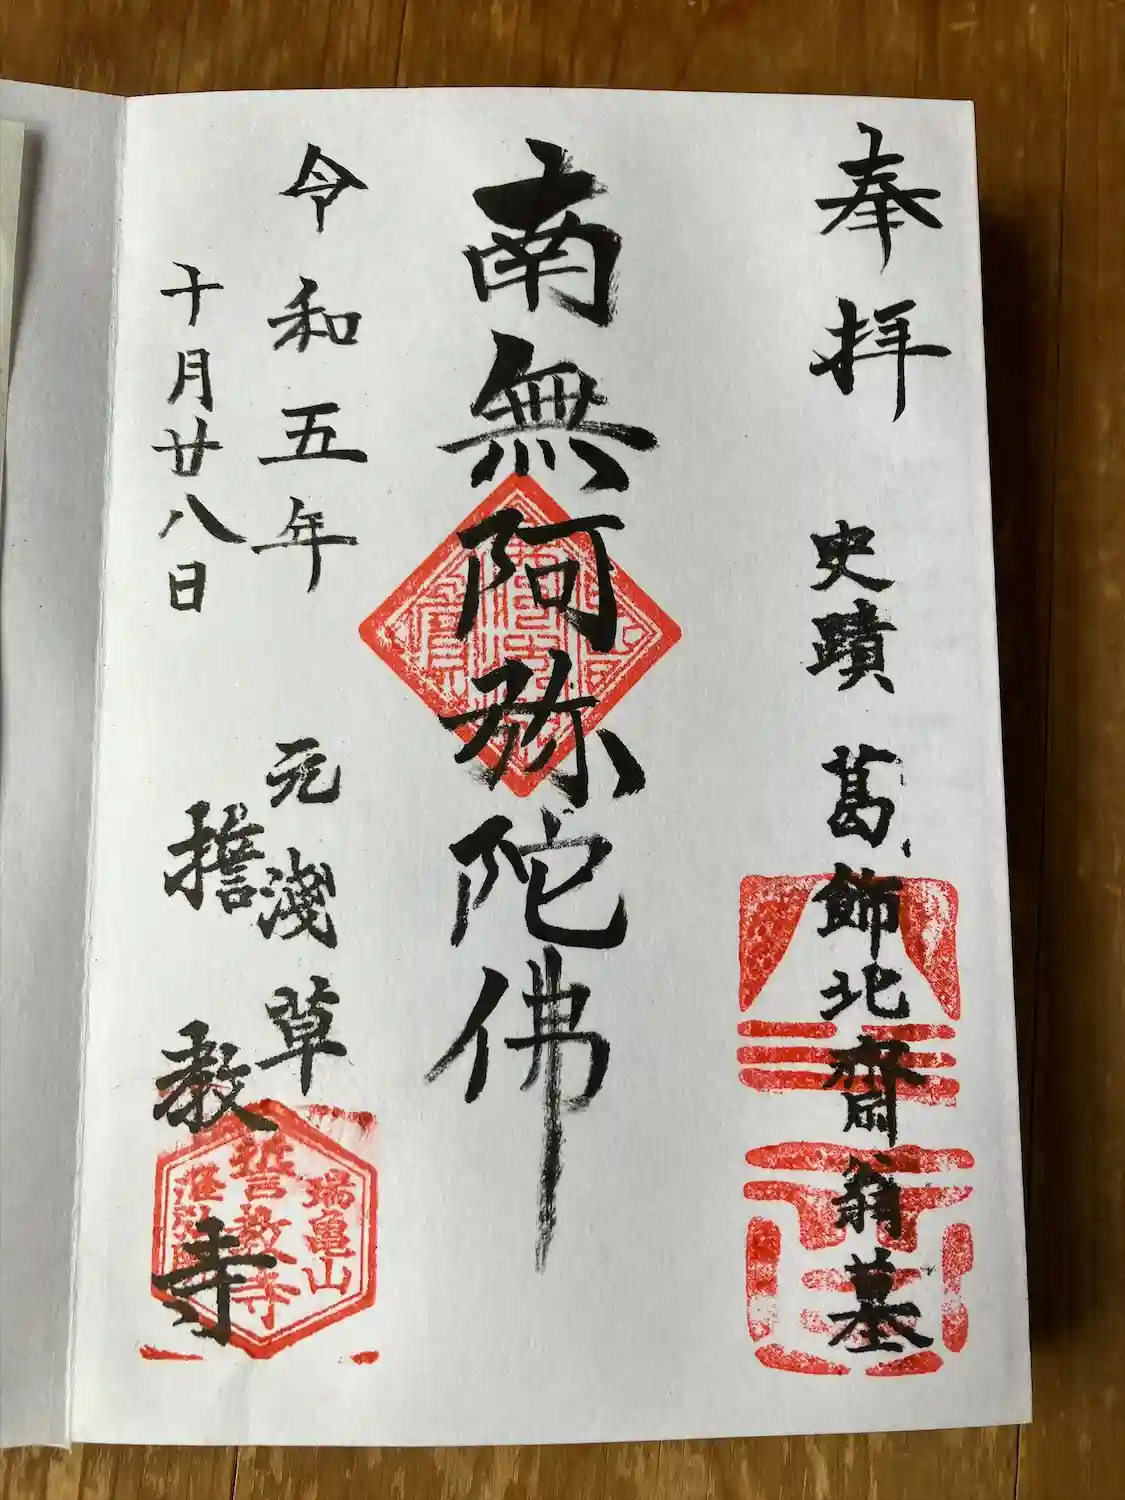 奉拝
史蹟 葛飾北齋翁墓
南無阿弥陀佛
令和五年
十月廿八日
元淺草
擔教寺
瑞亀山
誓教寺